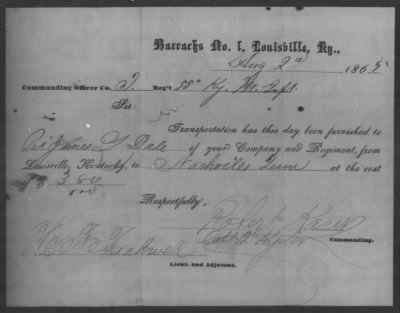 Barracks No. 1, Louisville, Ky.,
Aug 2d 186
Commanding Officer Co. I. Reg't 55th Ky. Mt. Inft.
Sir
Transportation has this day been furnished to
Dale of your Company and Regiment, from
Louisville, Kentucky, to Nashville Tenn at the cost
3 80
100
Respectfully,
Commanding.
Lieut. and Adjutant.